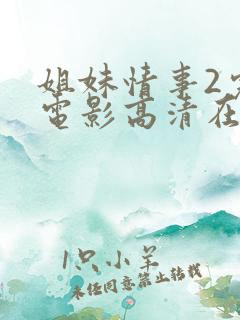 姐妹情事2
電影高清在
1只小羊
未经同意禁止转载